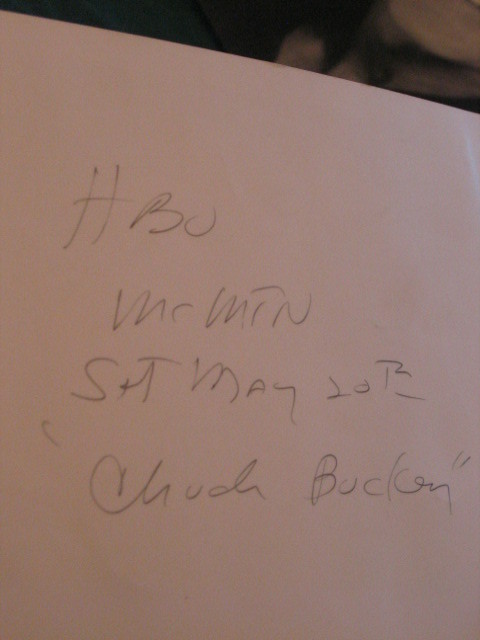 HBO
Mc MTN
SAT MAY 20TH
"Chuck Buckley"